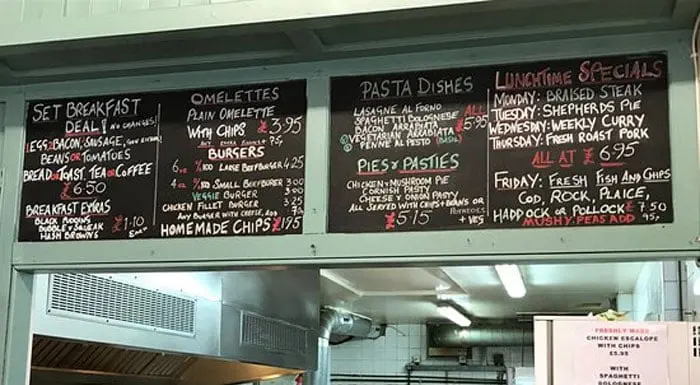 SET BREAKFAST
DEAL! (NO CHANGES!)
1 EGG 2 BACON, SAUSAGE,
BEANS OR TOMATOES
BREAD OR TOAST TEA OR COFFEE
£6.50
BREAKFAST EXTRAS
BLACK PUDDING
BUBBLE & SQUEAK £1.10
HASH BROWNS EACH
OMELETTES
PLAIN OMELETTE
WITH CHIPS £3.95
ANY EXTRA 75p
BURGERS
6 oz 100% LARGE BEEFBURGER 4.25
4 oz 100% SMALL BEEFBURGER 3.00
VEGGIE BURGER 3.00
CHICKEN FILLET BURGER 3.25
ANY BURGER WITH CHEESE, ADD 75p
HOMEMADE CHIPS £1.95
PASTA DISHES
LASAGNE AL FORNO
SPAGHETTI BOLOGNESE ALL
BACON ARRABIATA £5.95
VEGETARIAN ARRABIATA
PENNE AL PESTO (BASIL)
PIES & PASTIES
CHICKEN & MUSHROOM PIE
CORNISH PASTY
CHEESE & ONION PASTY
ALL SERVED WITH CHIPS & BEANS OR
£5.15 POTATOES
+ VEG
LUNCHTIME SPECIALS
MONDAY: BRAISED STEAK
TUESDAY: SHEPHERDS PIE
WEDNESDAY: WEEKLY CURRY
THURSDAY: FRESH ROAST PORK
ALL AT £6.95
FRIDAY: FRESH FISH AND CHIPS
COD, ROCK, PLAICE,
HADDOCK OR POLLOCK £7.50
MUSHY PEAS ADD 95p
FRESHLY MADE
CHICKEN ESCALOPE
WITH CHIPS
£5.95
WITH
SPAGHETTI
BOLOGNESE